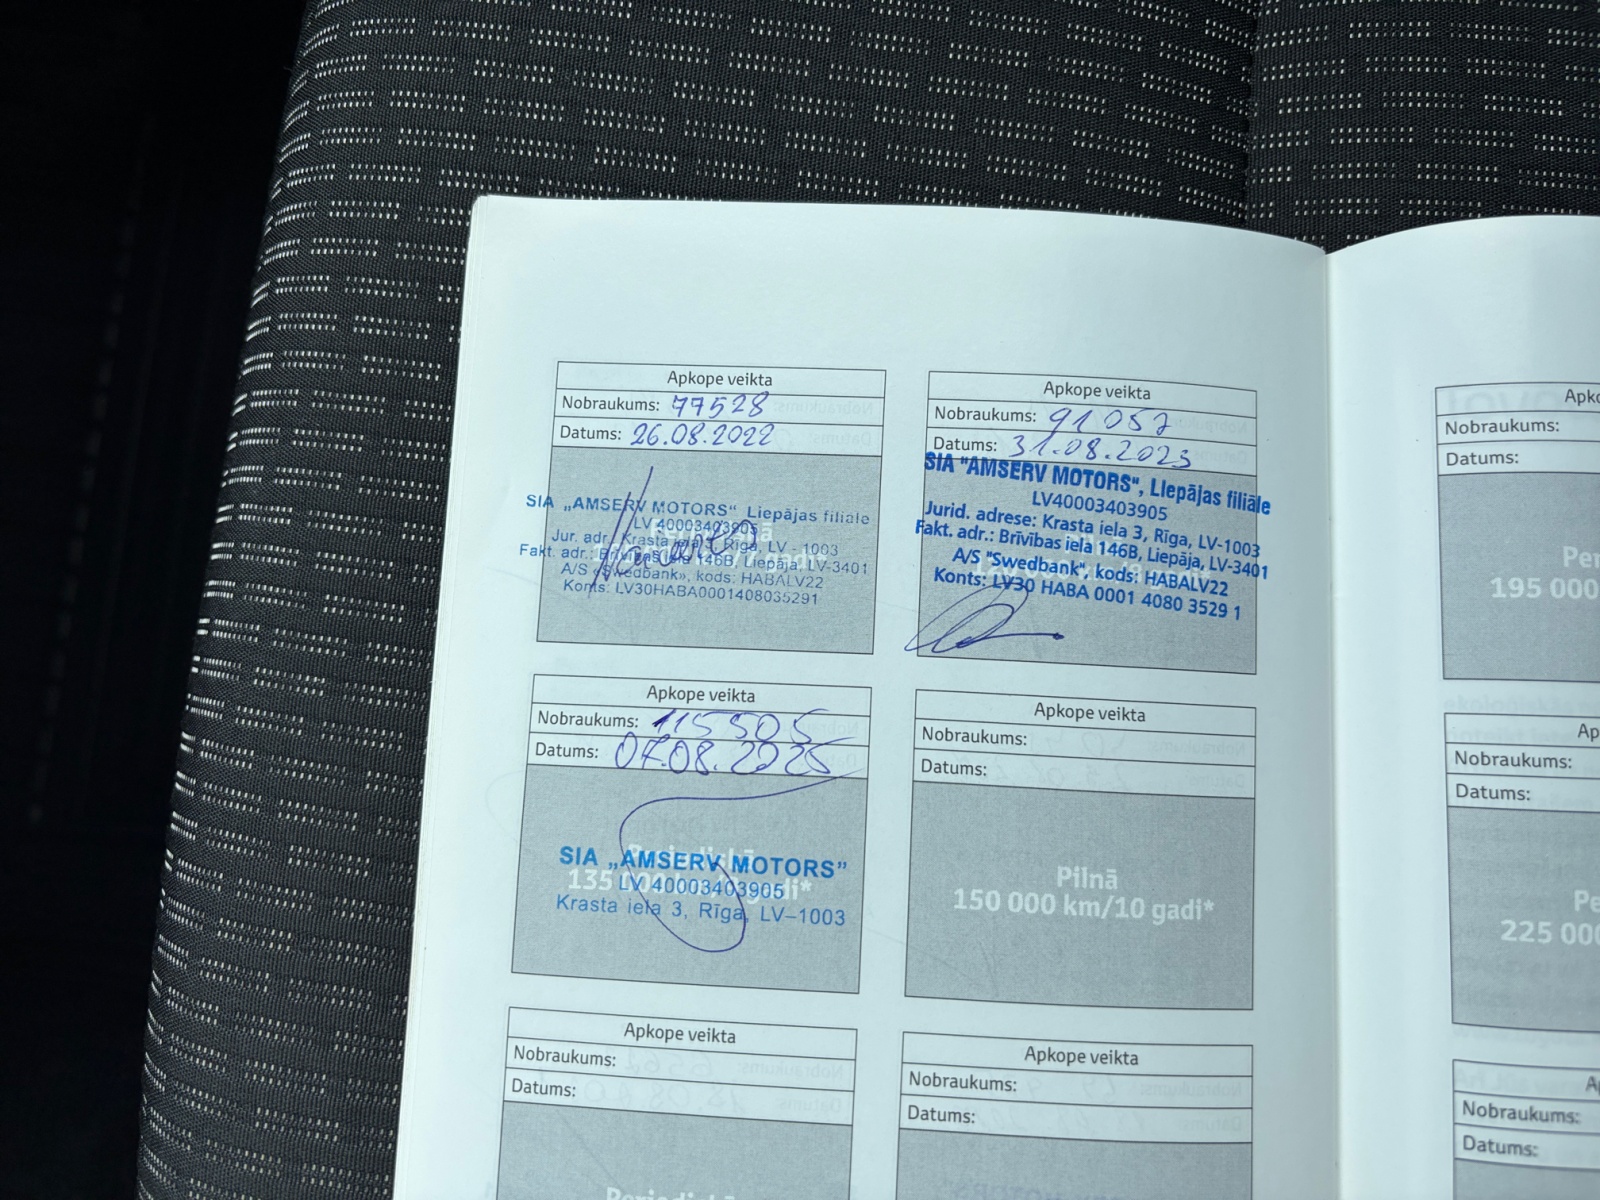 Apkope veikta
Nobraukums: 77528
Datums: 26.08.2022
SIA „AMSERV MOTORS“ Liepājas filiāle
LV 40003403905
Jur. adr.: Krasta iela 3, Rīga, LV - 1003
Fakt. adr.: Brīvības iela 146B, Liepāja, LV-3401
A/S «Swedbank», kods: HABALV22
Konts: LV30HABA0001408035291
Apkope veikta
Nobraukums: 91 057
Datums: 31.08.2023
SIA "AMSERV MOTORS", Liepājas filiāle
LV40003403905
Jurid. adrese: Krasta iela 3, Rīga, LV-1003
Fakt. adr.: Brīvības iela 146B, Liepāja, LV-3401
A/S "Swedbank", kods: HABALV22
Konts: LV30 HABA 0001 4080 3529 1
Apkope veikta
Nobraukums: 115505
Datums: 07.08.2025
SIA „AMSERV MOTORS”
LV 40003403905
135 gadi*
Krasta iela 3, Rīga, LV–1003
Apkope veikta
Nobraukums:
Datums:
Pilnā
150 000 km/10 gadi*
Apkope veikta
Nobraukums:
Datums:
Apkope veikta
Nobraukums:
Datums:
Nobraukums:
Datums:
195 000
Nobraukums:
Datums:
225 000
Nobraukums:
Datums: